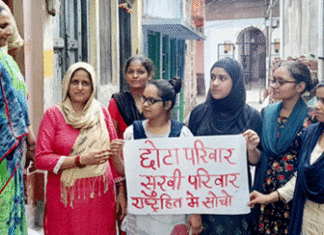 छोटा परिवार
सुखी परिवार
राष्ट्रहित मे सोचो